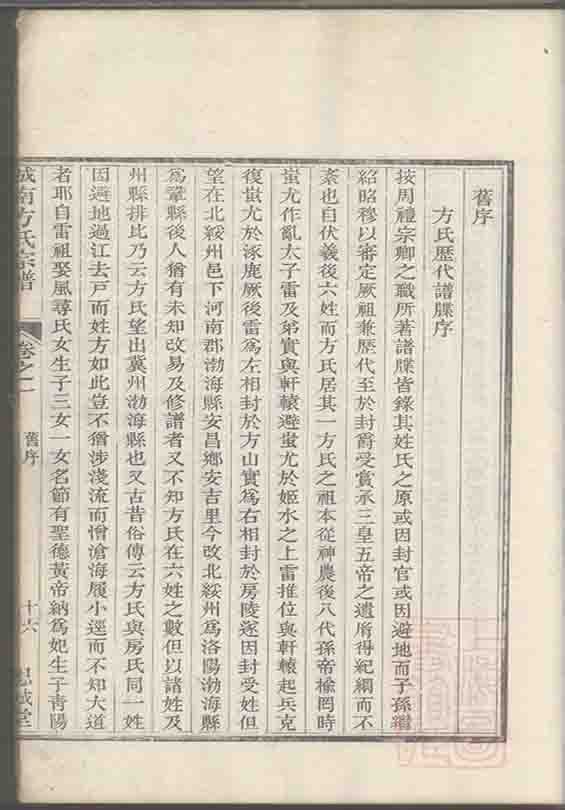 舊序
方氏歷代譜牒序
按周禮宗卿之職所著譜牒皆錄其姓氏之原或因封官或因避地而子孫繼
紹昭穆以審定厥祖兼歷代至於封爵受賞承三皇五帝之遺胤得紀綱而不
紊也自伏羲後六姓而方氏居其一方氏之祖本從神農後八代孫帝榆罔時
蚩尤作亂太子雷及弟實與軒轅避蚩尤於姬水之上雷推位與軒轅起兵克
復蚩尤於涿鹿厥後雷為左相封於方山實為右相封於房陵遂因封受姓但
望在北綏州邑下河南郡渤海縣安昌鄉安吉里今改北綏州為洛陽渤海縣
為鞏縣後人猶有未知改易及修譜者又不知方氏在六姓之數但以諸姓及
州縣排比乃云方氏望出冀州渤海縣也又古昔俗傳云方氏與房氏同一姓
因避地過江去戸而姓方如此豈不猶涉淺流而憎滄海履小逕而不知大道
者耶自雷祖娶風尋氏女生子三女一女名節有聖德黃帝納為妃生子青陽
城南方氏宗譜
卷之一
舊序
十六